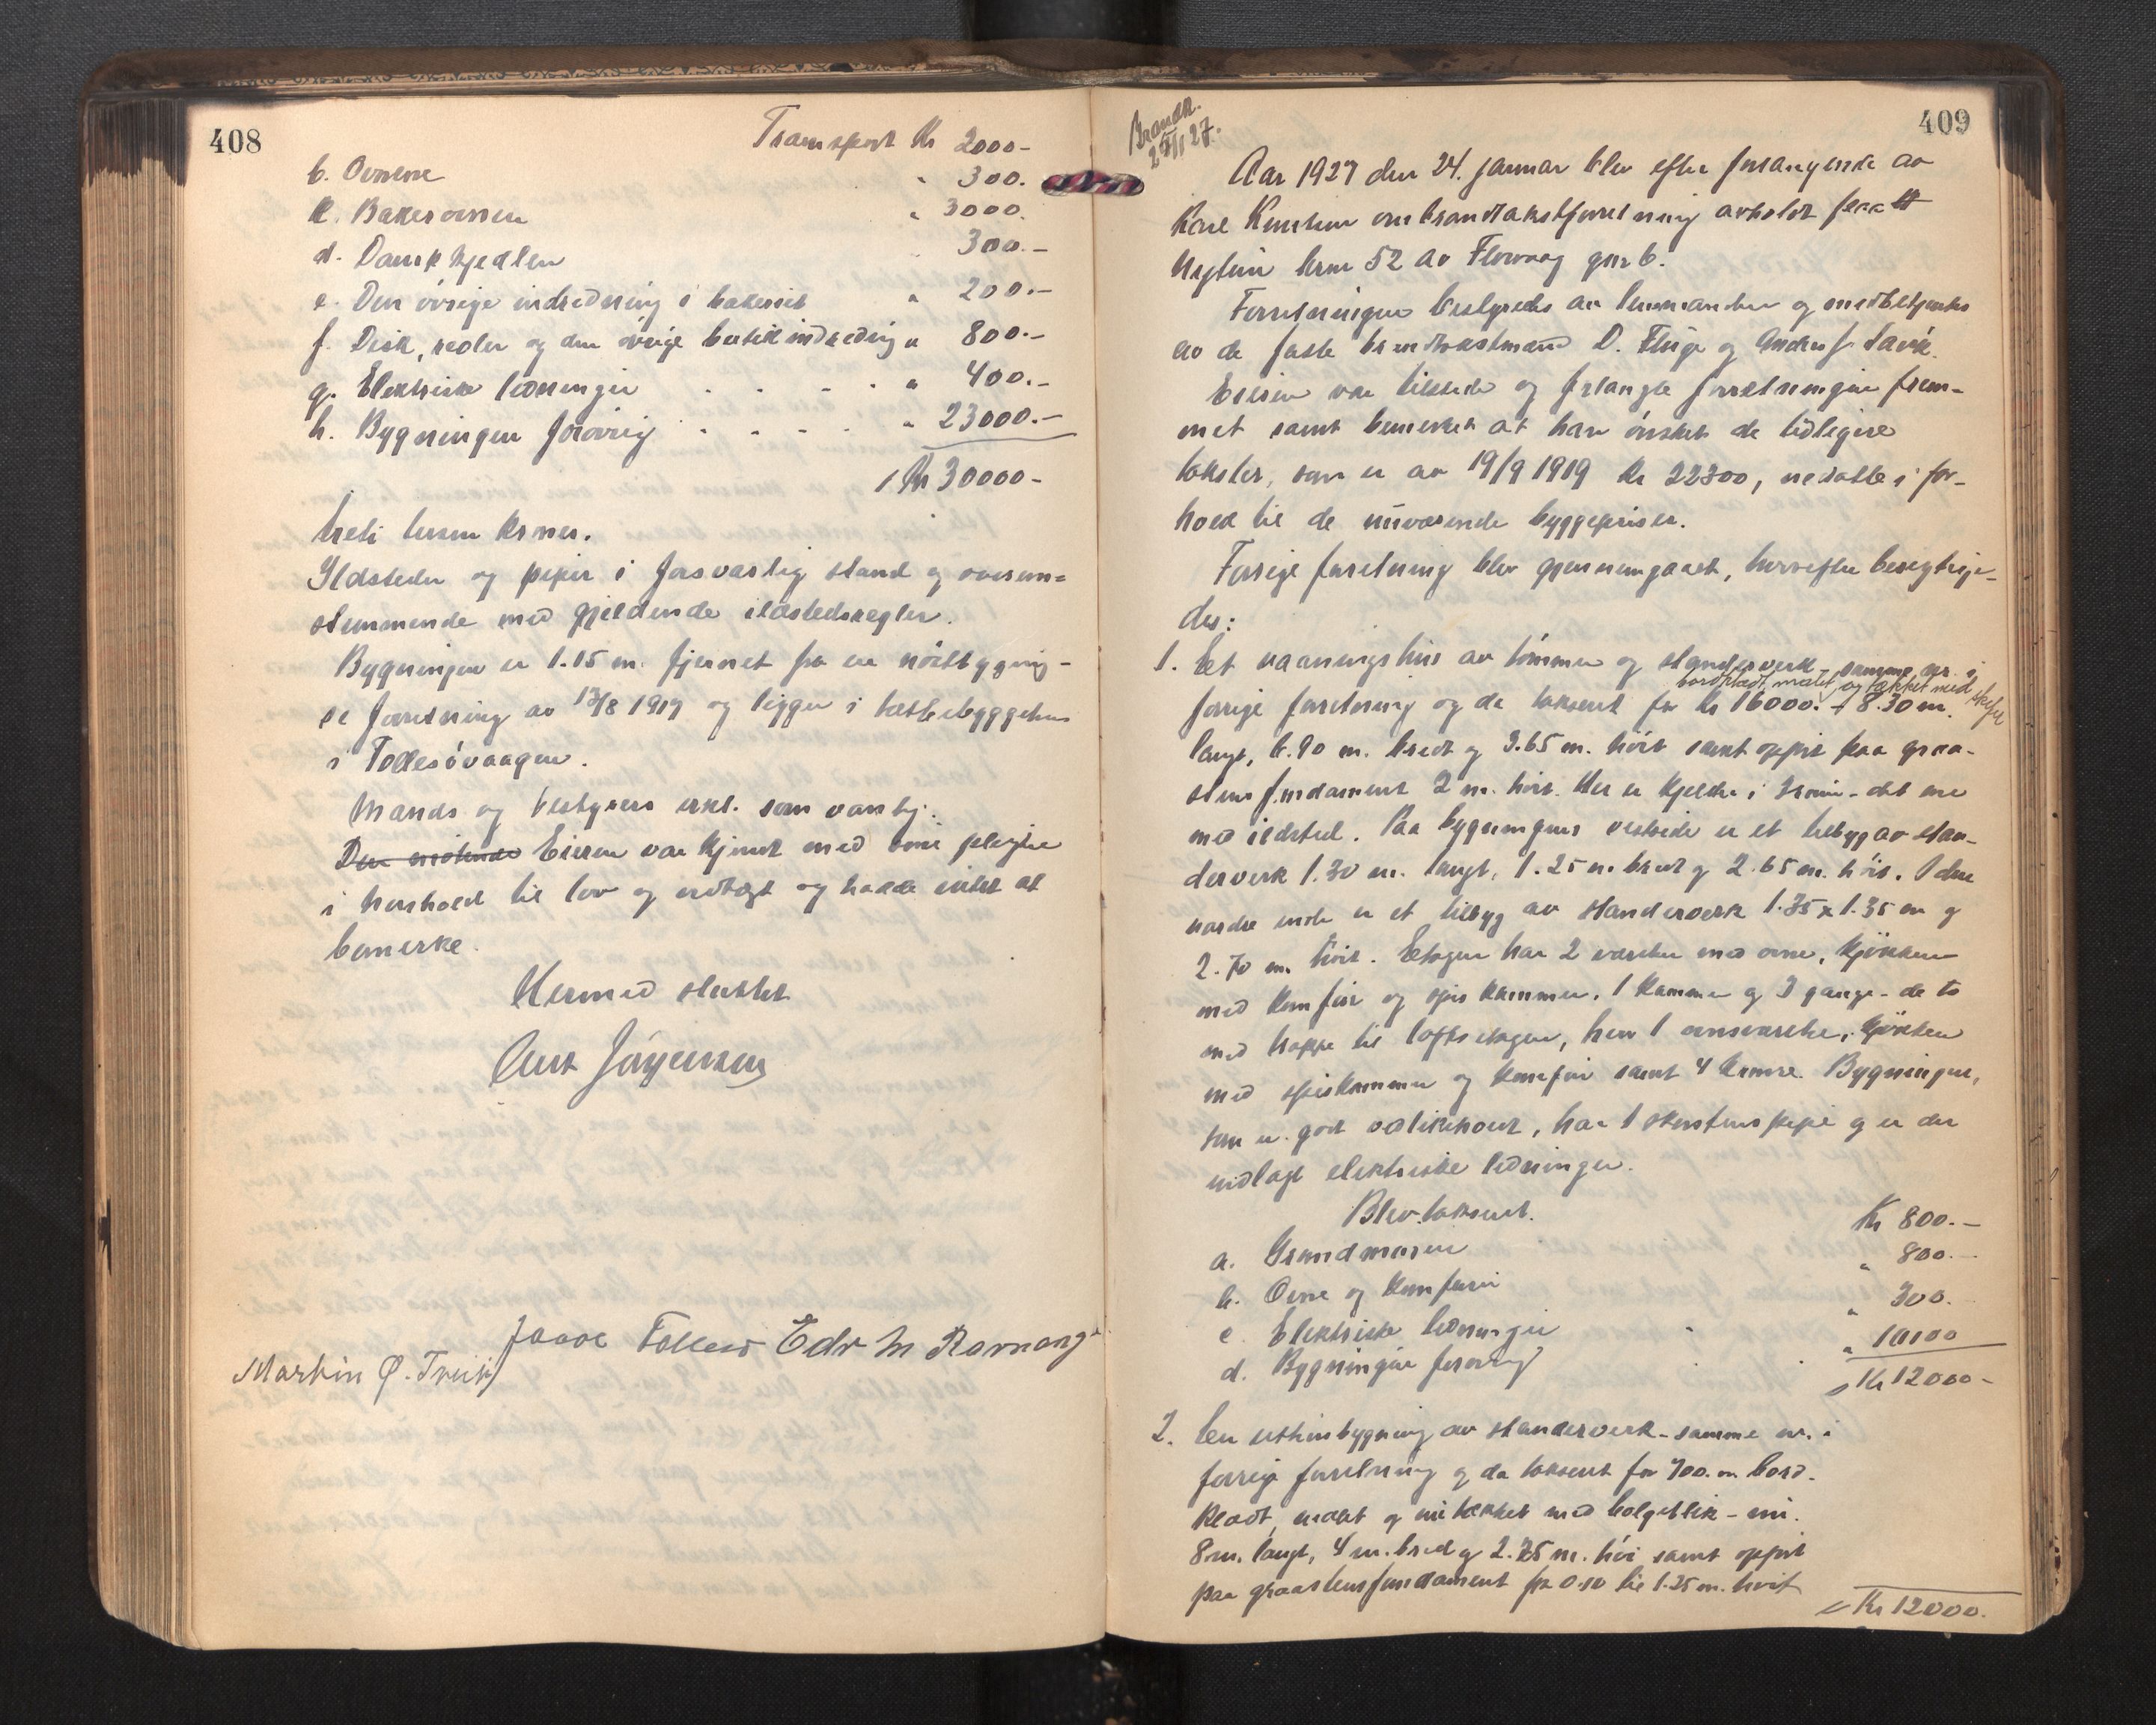 408
Transport Kr 2000-
b. Ovnene " 300.
c. Bakerovnen " 3000.
d. Dampkjedlen 300.-
e. Den øvrige indredning i bakeriet " 200.-
f. Disk, reoler og den øvrige butikindredning " 800.-
g. Elektriske ledninger . . . . " 400.-
h. Bygningen forøvrig . . . . " 23000.-
Kr 30000-
treti tusen kroner.
Ildsteder og piper i forsvarlig stand og overens=
stemmende med gjeldende ildstedsregler.
Bygningen er 1.15 m. fjernet fra en
se forretning av 13/8 1919 og ligger i tettebyggelsen
i Follesøvaagen.
Mands og bestyrers erkl. som vanlig.
Den møtende Eieren var kjent med sine pligter
i henhold til lov og vedtægt og hadde intet at
bemerke.
Hermed sluttet
Jørgensen
Martin Ø. Treit Follesø Edv M Ramang
409
Brandk.
27/1 27.
Aar 1927 den 24. januar blev efter forlangende av
Karl Knutsen om brandtakstforretning avholdt paa
Nyheim brnr 52 av Florvaag gnr 6.
Forretningen bestyredes av lensmanden og medbetjentes
av de faste brandtakstmænd D. Fluge og Anders J.
Eieren var tilstede og forlangte forretningen frem-
met samt bemerket at han ønsket de tidligere
takster, som er av 19/9 1919 Kr 22300, nedsatte i for-
hold til de nuværende byggepriser.
Forrige forretning blev gjennemgaaet, hvorefter besigtige-
des:
1. Et vaaningshus av tømmer og standerverk - samme nr. i
bordklædt, malet og tækket med skifer
forrige forretning og da taksert for kr 16000. - 8.30 m.
langt, 6.90 m. bredt og 3.65 m. høit samt opført paa graa-
stens fundament 2 m. høit. Her er kjelder i 3 rum - det ene
med ildsted. Paa bygningens vestside er et tilbyg av stan-
derverk 1.30 m. langt, 1.25 m bredt og 2.65 m. høit. I den
nordre ende er et tilbyg av standerverk 1.35 x 1.35 m og
2.70 m. høit. Etagen har 2 værelser med ovne, kjøkken
med komfur og spiskammer, 1 kammer og 3 gange - de to
med trappe til loftsetagen, hvor 1 ovnsværelse, kjøkken
med spiskammer og komfur samt 4 kamre. Bygningen,
som er godt vedlikeholdt, har 1 skorstenspipe og er der
indlagt elektriske ledninger.
Blev taksert.
a. Grundmuren Kr 800.-
b. Ovne og komfurer " 800.-
c. Elektriske ledninger " 300.
d. Bygningen forøvrig " 10100
Kr 12000-
2. En uthusbygning av standerverk - samme nr. i
forrige forretning og da taksert for 700. - bord-
klædt, malt og nu tækket med bølgeblik - nu.
8 m. langt, 4 m. bred og 2.75 m. høi samt opført
paa graastensfundament fra 0.10 til 1.25 m. høit
Kr 12000.